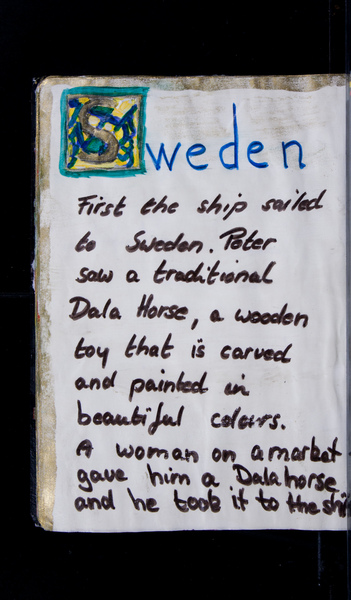 Sweden
First the ship sailed
to Sweden. Peter
saw a traditional
Dala Horse, a wooden
toy that is carved
and painted in
beautiful colours.
A woman on a market
gave him a Dalahorse
and he took it to the ship